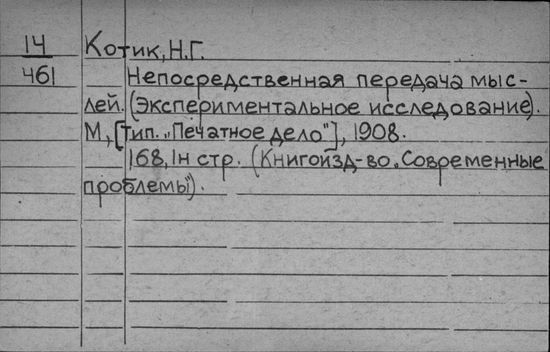 14 Котик, Н.Г.
461 Непосредственная передача мыс-
лей. (Экспериментальное исследование).
М., [тип. „Печатное дело"], 1908.
168, 1н стр. (Книгоизд-во „Современные
проблемы").